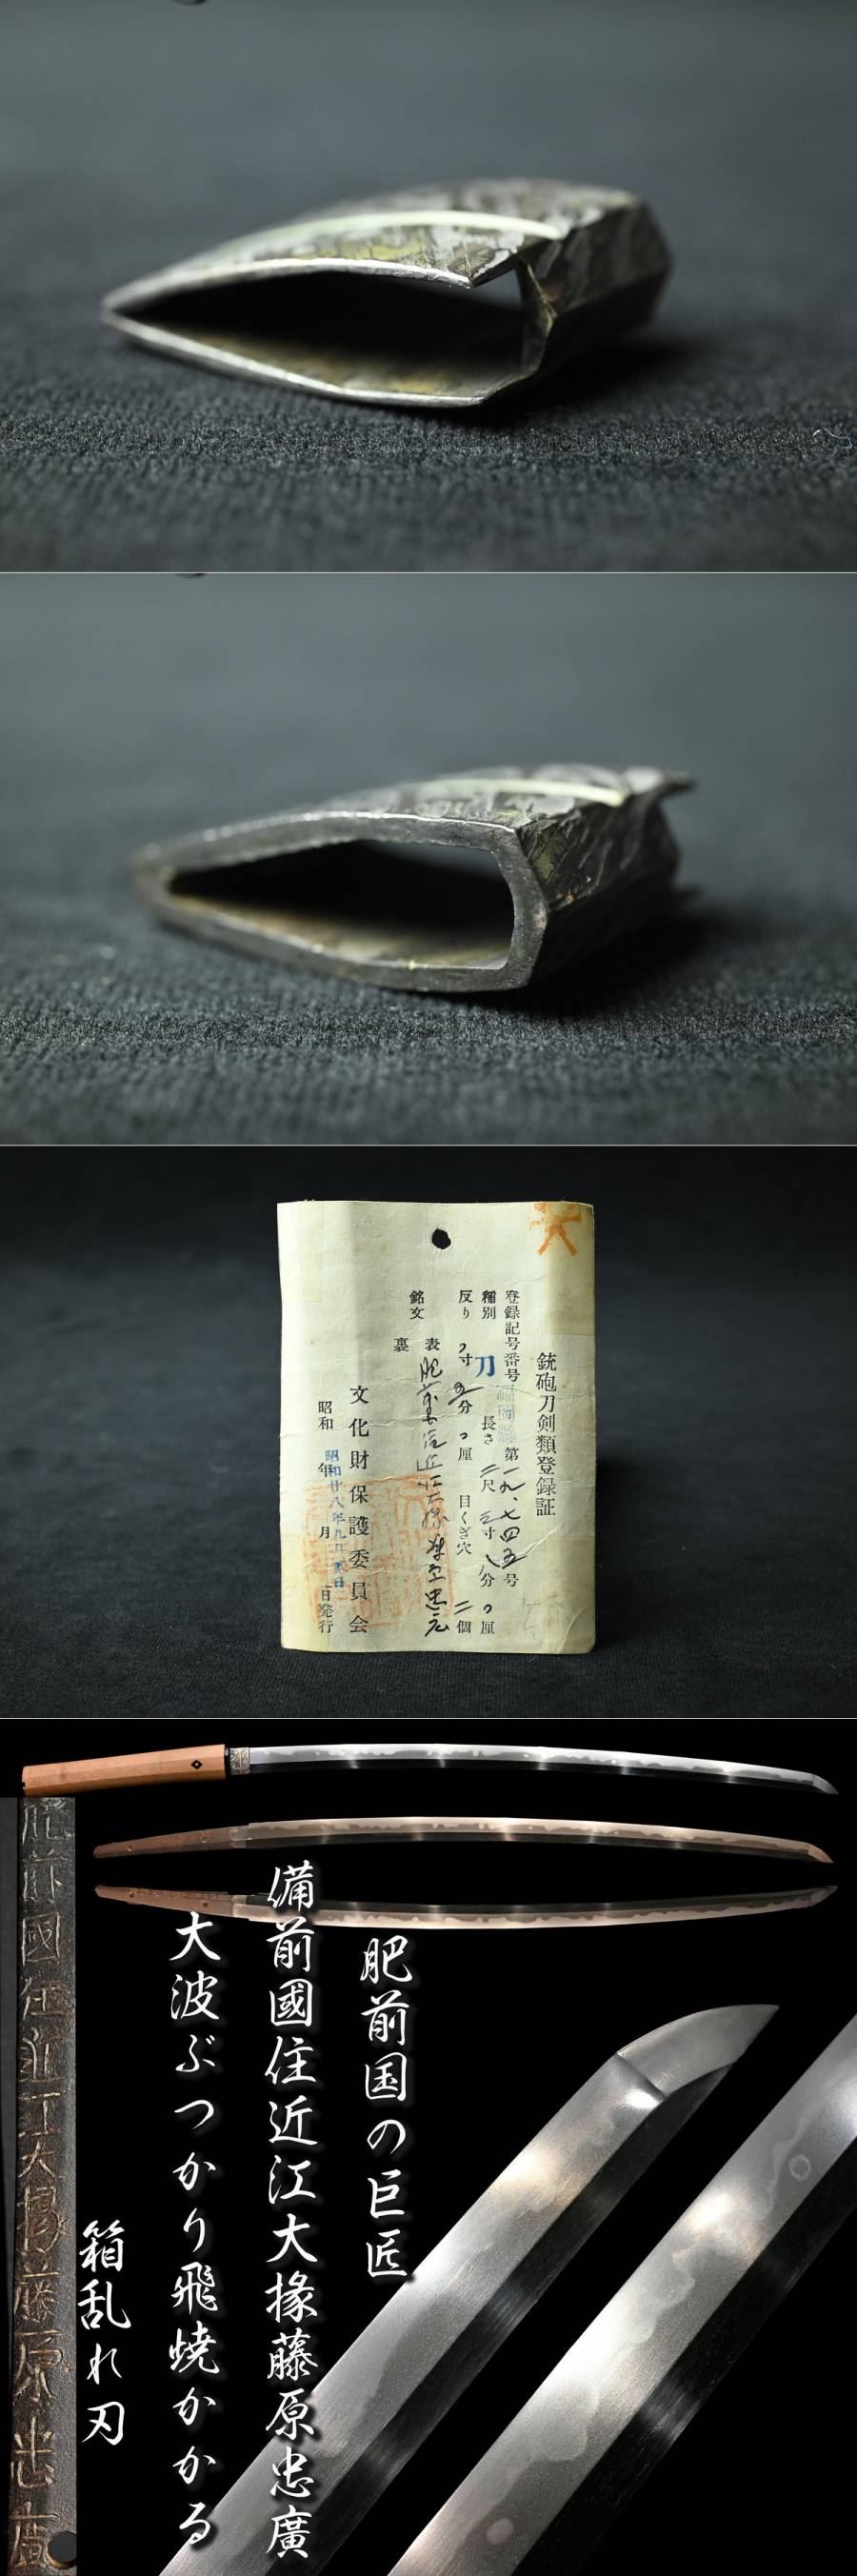 銃砲刀剣類登録証
登録記号番号 第一九、七四五号
種別 刀 長さ 二尺三寸八分〇厘
反り 〇寸四分〇厘 目くぎ穴 二個
銘文 表 肥前国住近江大掾藤原忠広
裏
文化財保護委員会
昭和 年 月 日発行
肥前国の巨匠
備前國住近江大掾藤原忠廣
大波ぶつかり飛焼かかる
箱乱れ刃
肥前國住近江大掾藤原忠廣